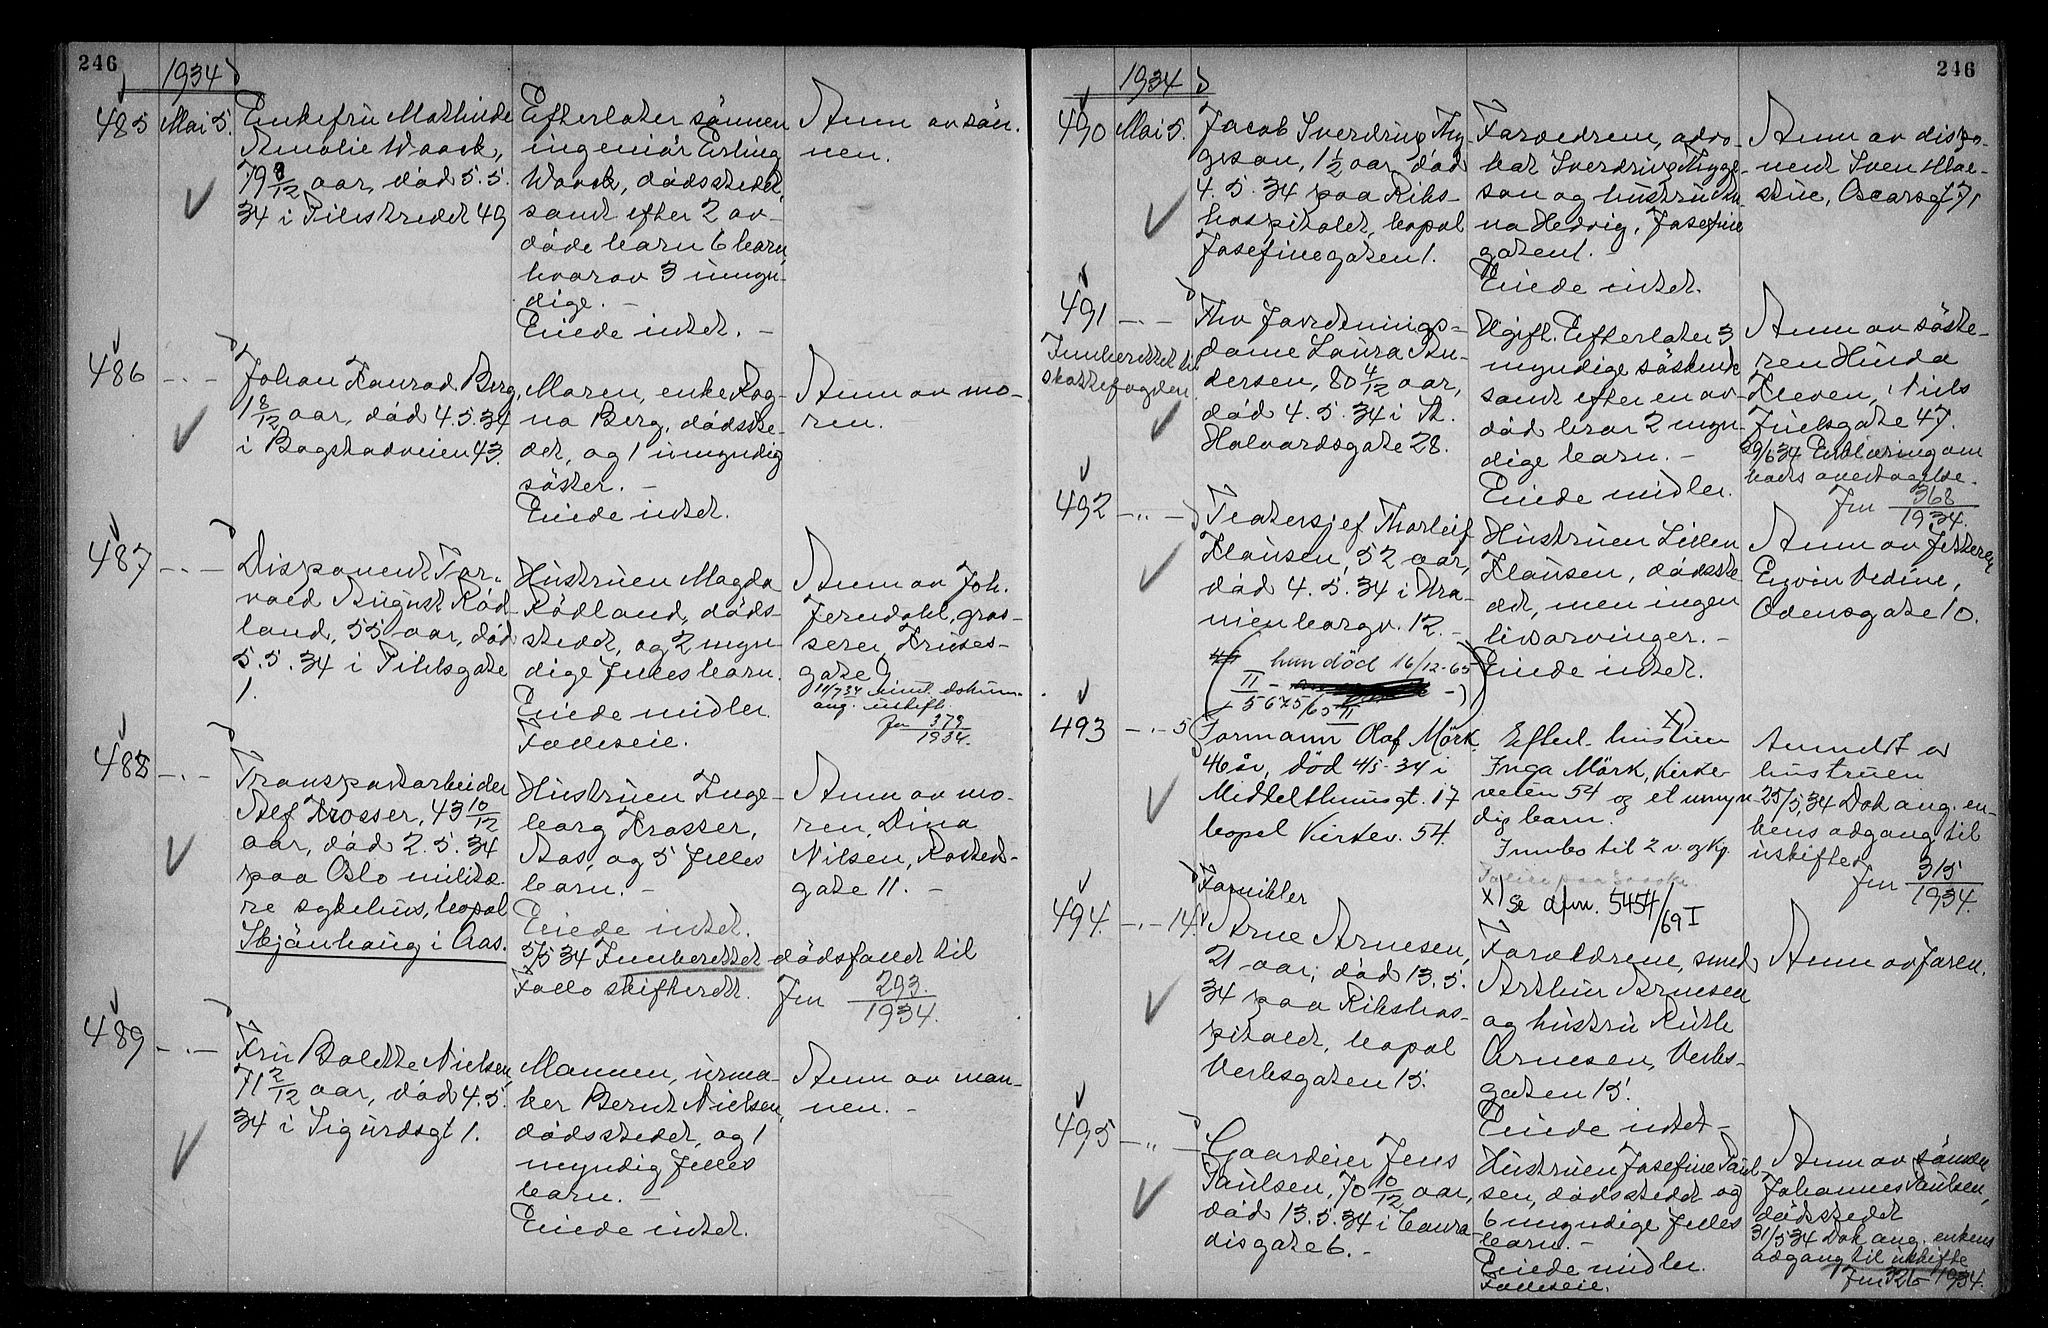 246
1934
485
Mai 5.
Enkefru Mathinde
Amalie Waack,
79 8/12 aar, död 5.5.
34 i Pilestredet 49
Efterlater sönnen
ingeniör Erling
Waack, dödsstedet,
samt efter 2 av-
döde barn 6 barn
hvorav 3 umyn-
dige. -
Eiede intet. -
Anm av sön-
nen.
486
-.-
Johan Konrad Berg,
1 8/12 aar, död 4.5.34
i Bogstadveien 43.
Moren, enke Rag-
na Berg, dödsste-
det, og 1 umyndig
söster. -
Eiede intet.
Anm av mo-
ren.
487
-.-
Disponent Tor-
vald August Röd-
land, 55 aar, död
5.5.34 i Pihlsgate
1.
Hustruen Magda
Rödland, döds-
stedet, og 2 myn-
dige felles barn.
Eiede midler.
Felleseie.
Anm av Joh.
Ferndahl, gros-
serer, Kruses-
gate 9
11/7 34 dokum.
ang. uskift.
Jnr 379/1934.
488
-.-
Transportarbeider
Alf Krosser, 43 10/12
aar, död 2.5.34
paa Oslo militæ-
re sykehus, bopæl
Skjönhaug i Aas.
Hustruen Inge-
borg Krosser,
Aas, og 5 felles
barn. -
Eiede intet.
5/5 34 Innberettet dödsfallet til
Follo skifterett.
Jnr 293/1934.
Anm av mo-
ren, Dina
Nilsen, Rosted-
gate 11. -
489
-.-
Fru Bolette Nielsen,
71 2/12 aar, död 4.5.
34 i Sigurdsgt 1.
Mannen, urma-
ker Bernt Nielsen,
dödsstedet, og 1
myndig felles
barn. -
Eiede intet.
Anm av man-
nen. -
246
1934
490
Mai 5.
Jacob Sverdrup Thy-
geson, 1 1/2 aar, död
4.5.34 paa Riks-
hospitalet, bopæl
Josefinegaten 1.
Forældrene, advo-
kat Sverdrup Thyge-
son og hustru
Hedvig, Josefine
gaten 1. -
Eiede intet.
Anm av dispo-
nent Sven
Oscarsgt 71
491
-.-
Innberettet til
skattefogden
Fhv forretnings-
dame Laura An-
dersen, 80 4/12 aar,
död 4.5.34 i St.
Halvardsgate 28.
Ugift. Efterlater 3
myndige söskende
samt efter en av-
död bror 2 myn-
dige barn. -
Eiede midler.
Anm av söste-
ren Hinda
Kleven, Niels
Juelsgate 47.
29/6 34 Erklæring om
boets overtagelse.
Jnr 368/1934.
492
-.-
Teatersjef Thorleif
Klausen, 52 aar,
död 4.5.34 i Ura-
nienborgv. 12. -
hun död 16/12-65
5675/65 II
Hustruen Lillen
Klausen, dödsste-
det, men ingen
livsarvinger. -
Eiede intet.
Anm av fetteren
Eyvin Vedine,
Odensgate 10.
493
-.- 5
Formann Olaf Mörk
46 år, död 4/5-34 i
Middelthunsgt. 17
bopæl Kirkev. 54.
Efterl. hustruen x)
Inga Mörk, Kirke-
veien 54 og et umyn-
dig barn.
Innbo til 2 v. og kj.
x) Se dfnr. 5454/69 I
Anmeldt av
hustruen
25/5 34 Dok ang. en-
kens adgang til
uskifte
Jnr 315/1934.
494.
-.- 14.
Fornikler
Arne Arnesen,
21 aar, död 13.5.
34 paa Rikshos-
pitalet, bopæl
Verksgaten 15.
Forældrene, smed
Arthur Arnesen
og hustru Ruth
Arnesen, Verks-
gaten 15.
Eiede intet -
Anm av faren.
495
-.-
Gaardeier Jens
Paulsen, 70 10/12 aar,
död 13.5.34 i Coura-
disgate 6. -
Hustruen Josefine Paul-
sen, dödsstedet og
6 myndige felles
barn. -
Eiede midler.
Felleseie.
Anm av sönnen
Johannes Paulsen,
dödsstedet
31/5 34 Dok ang. enkens
adgang til uskifte
Jnr 326 1934.